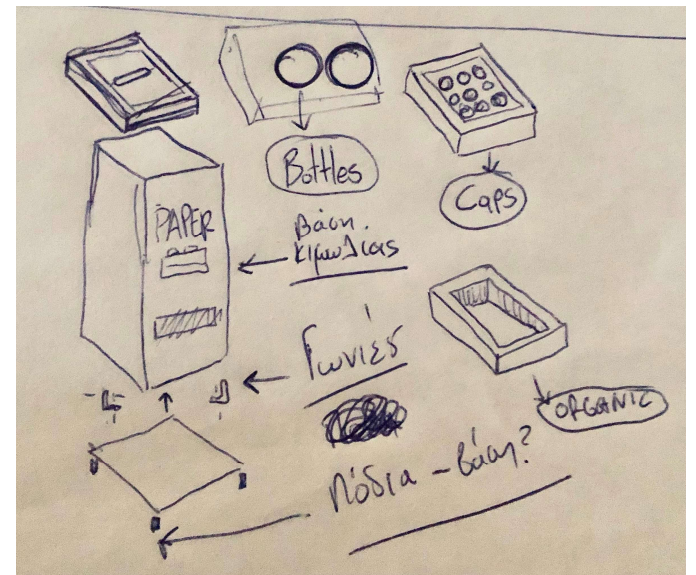 Bottles
Caps
PAPER
Βάση.
κιμωλίας
Γωνιές
ORGANIC
Πόδια - βάση?